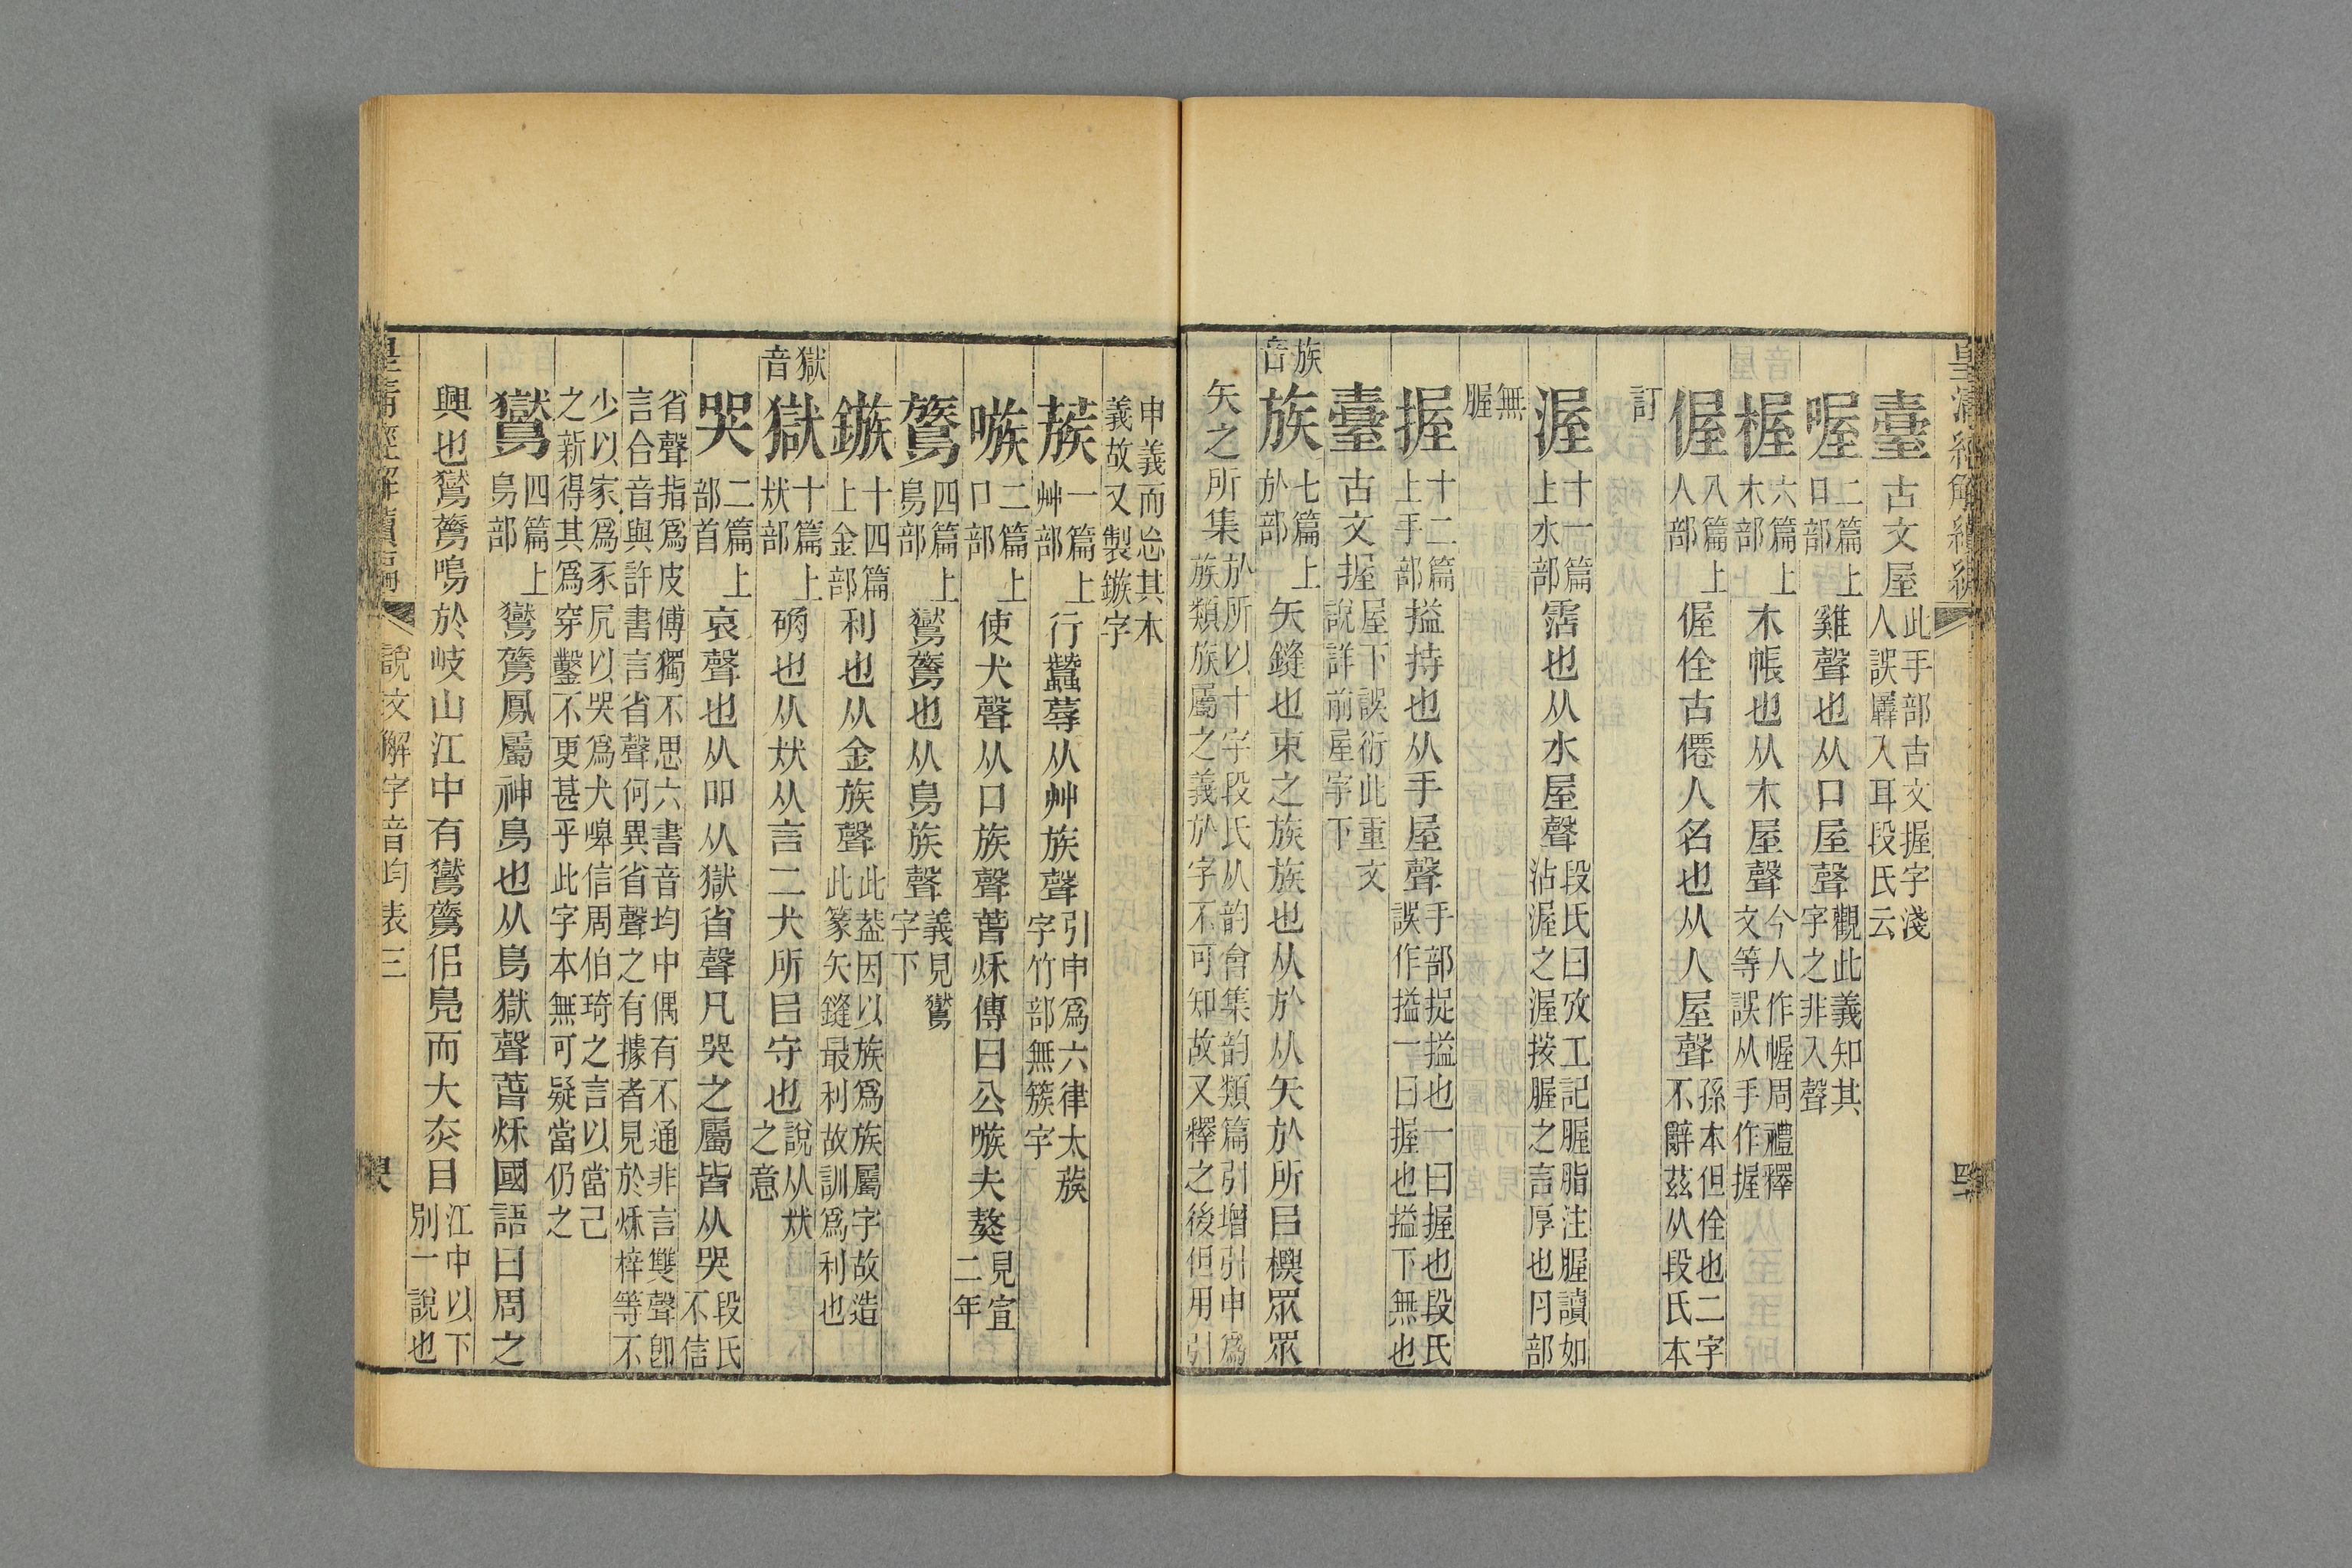 皇清經解續編
臺古文屋此手部古文握字淺人誤羼入耳段氏云
喔二篇上口部雞聲也从口屋聲觀此義知其字之非入聲
楃六篇上木部木帳也从木屋聲今人作幄周禮釋文等誤从手作握
偓八篇上人部偓佺古僊人名也从人屋聲孫本但佺也二字不辭茲从段氏本
訂
渥十一篇上水部霑也从水屋聲段氏曰攷工記腛脂注腛讀如沾渥之渥按腛之言厚也肉部
無腛
握十二篇上手部搤持也从手屋聲手部捉搤也一曰握也段氏誤作搤一曰握也搤下無也
臺古文握屋下誤衍此重文說詳前屋字下
族音
族七篇上㫃部矢鏠也束之族族也从㫃从矢㫃所㠯標眾眾
矢之所集㫃所以十字段氏从韵會集韵類篇引增引申爲族類族屬之義於字不可知故又釋之後但用引
申義而忘其本義故又製鏃字
蔟一篇上艸部行蠶蓐从艸族聲引申爲六律太蔟字竹部無簇字
嗾二篇上口部使犬聲从口族聲萅秌傳曰公嗾夫獒見宣二年
鷟四篇上鳥部鸑鷟也从鳥族聲義見鸑字下
鏃十四篇上金部利也从金族聲此葢因以族爲族屬字故造此篆矢鏠最利故訓爲利也
獄音
獄十篇上㹜部确也从㹜从言二犬所㠯守也說从㹜之意
哭二篇上部首哀聲也从吅从獄省聲凡哭之屬皆从哭段氏不信
省聲指爲皮傅獨不思六書音均中偶有不通非言雙聲卽言合音與許書言省聲何異省聲之有據者見於秌梓等不
少以家爲豕凥以哭爲犬嘷信周伯琦之言以當己之新得其爲穿鑿不更甚乎此字本無可疑當仍之
鸑四篇上鳥部鸑鷟鳳屬神鳥也从鳥獄聲萅秌國語曰周之
興也鸑鷟鳴於岐山江中有鸑鷟佀鳧而大赤目江中以下別一說也
皇清經解續編
說文解字音均表三